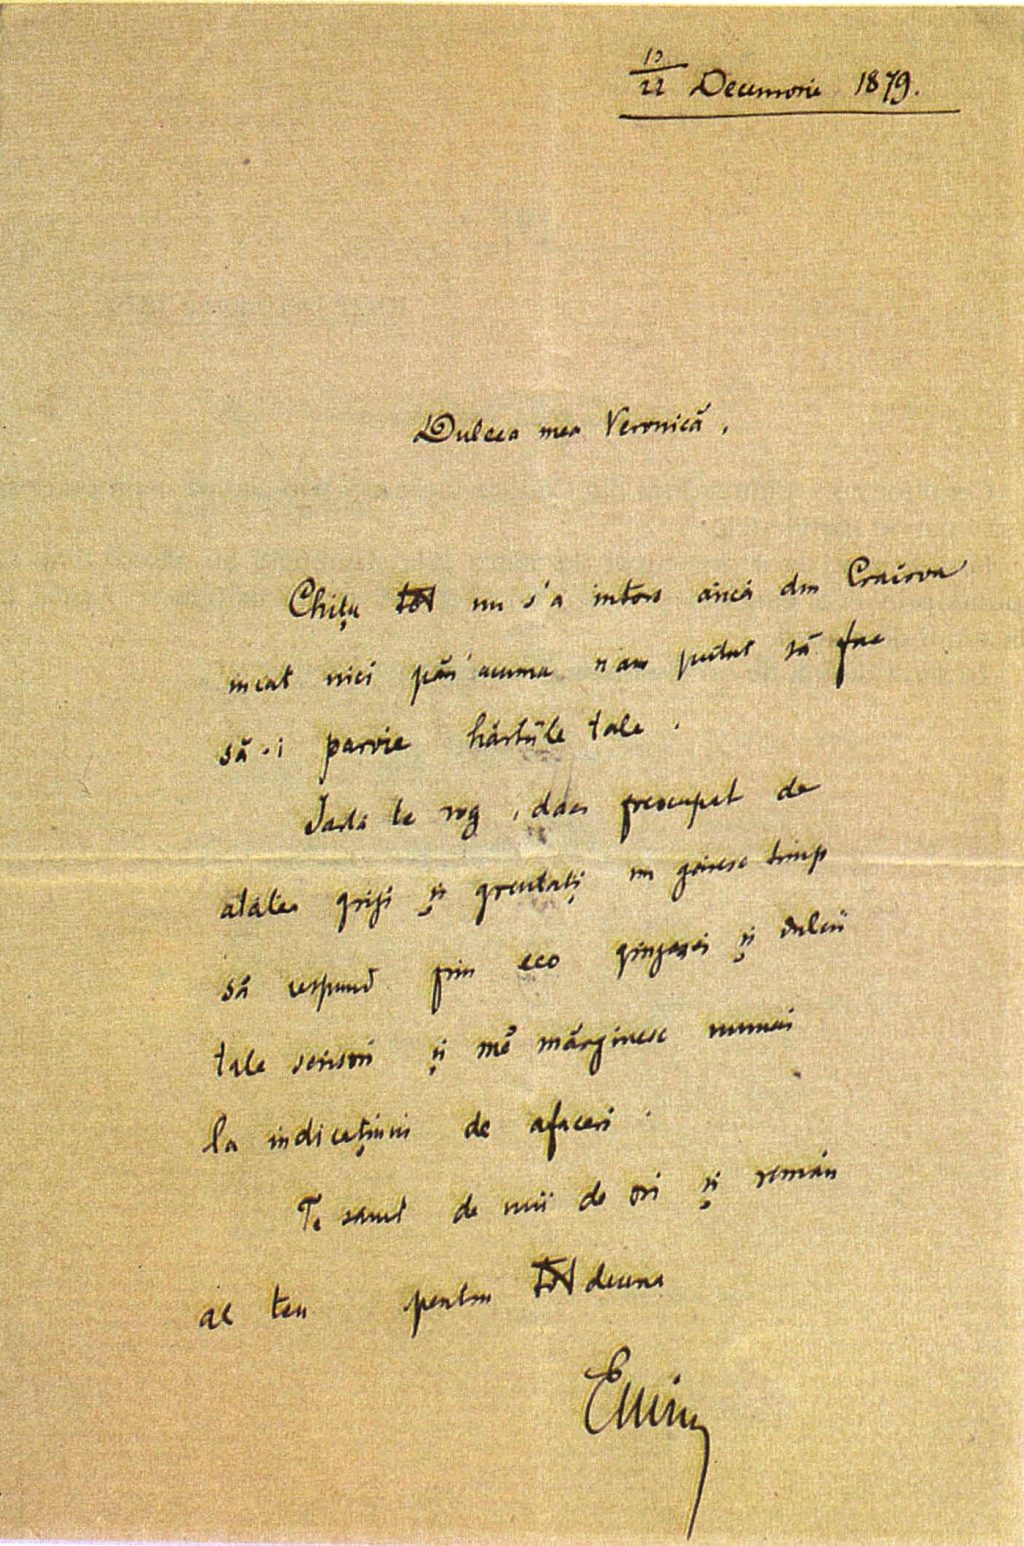 10
22 Decemvrie 1879.
Dulcea mea Veronică,
Chițu tot nu s'a intors āncā din Craiova
incat nici pān'acuma n'am putut sā fac
sā-i parvie hārtiile tale.
Iartā te rog, dacā preocupat de
atâtea griji și greutați nu gāsesc timp
sā respund prin eco gingașei și dulcii
tale scrisori și mĕ mārginesc numai
la indicațiuni de afaceri.
Te sarut de mii de ori și remān
al tĕu pentru totdeuna
Emin